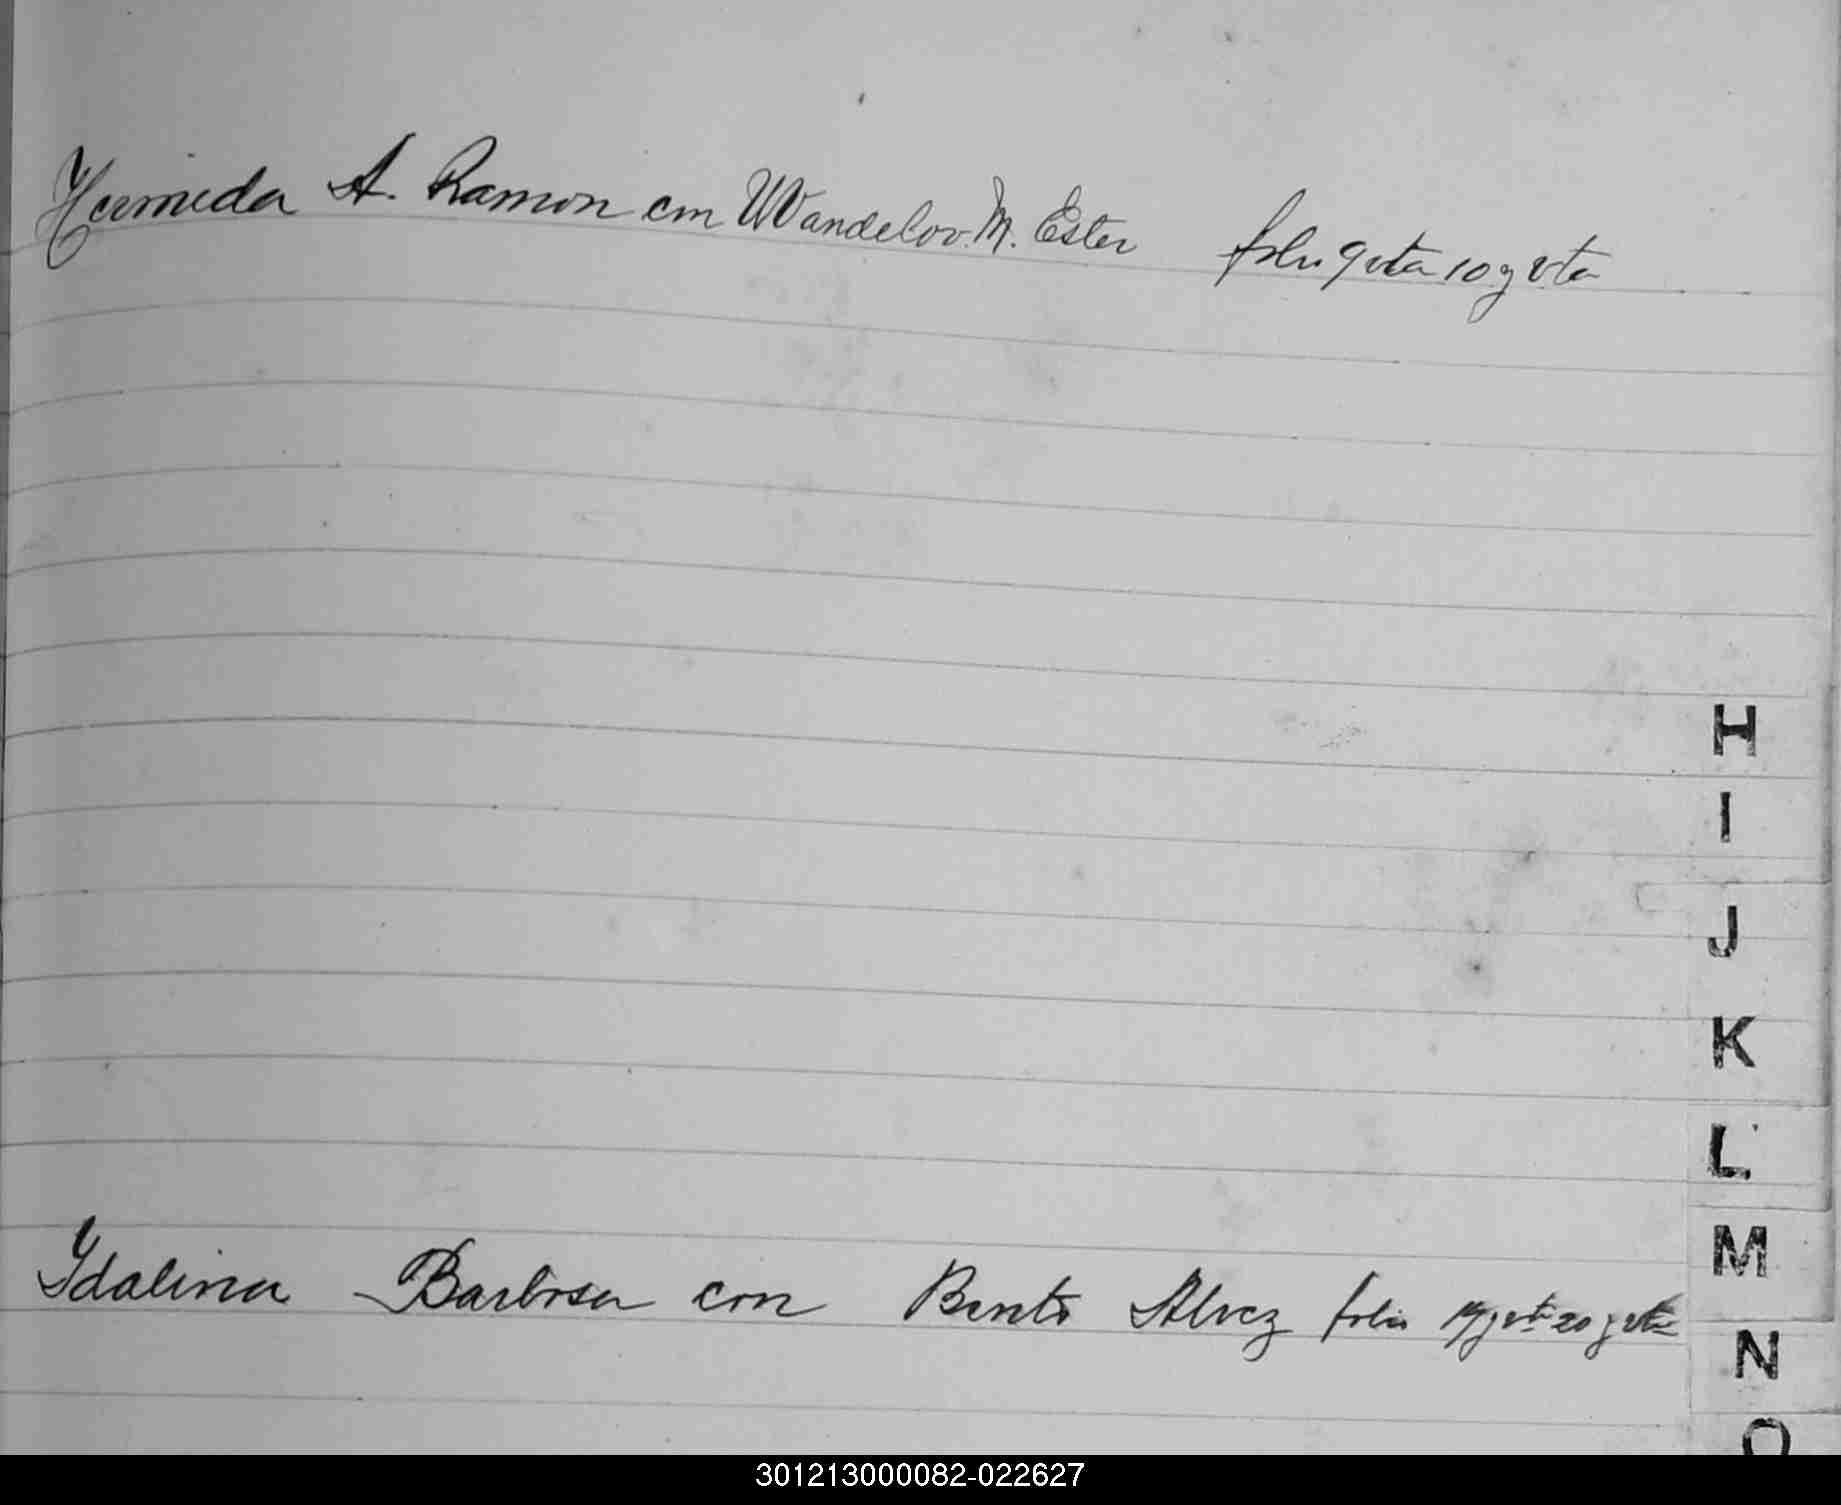 Hermida A. Ramon con Wandelov. M. Ester folio 9 vta 10 y vta
H
I
J
K
L
M
Ydalina Barbosa con Bento Alvez folio 19 y vta 20 y vta
N
O
301213000082-022627